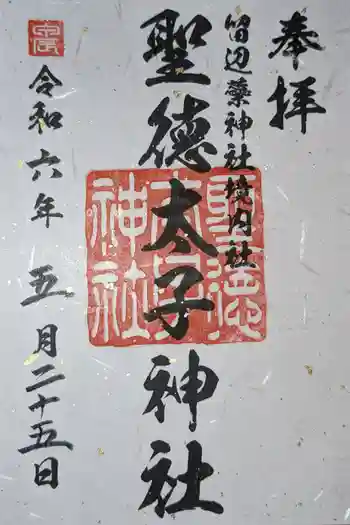 奉拝
留辺蘂神社境内社
聖徳太子神社
聖徳
太子
神社
令和六年 五月二十五日